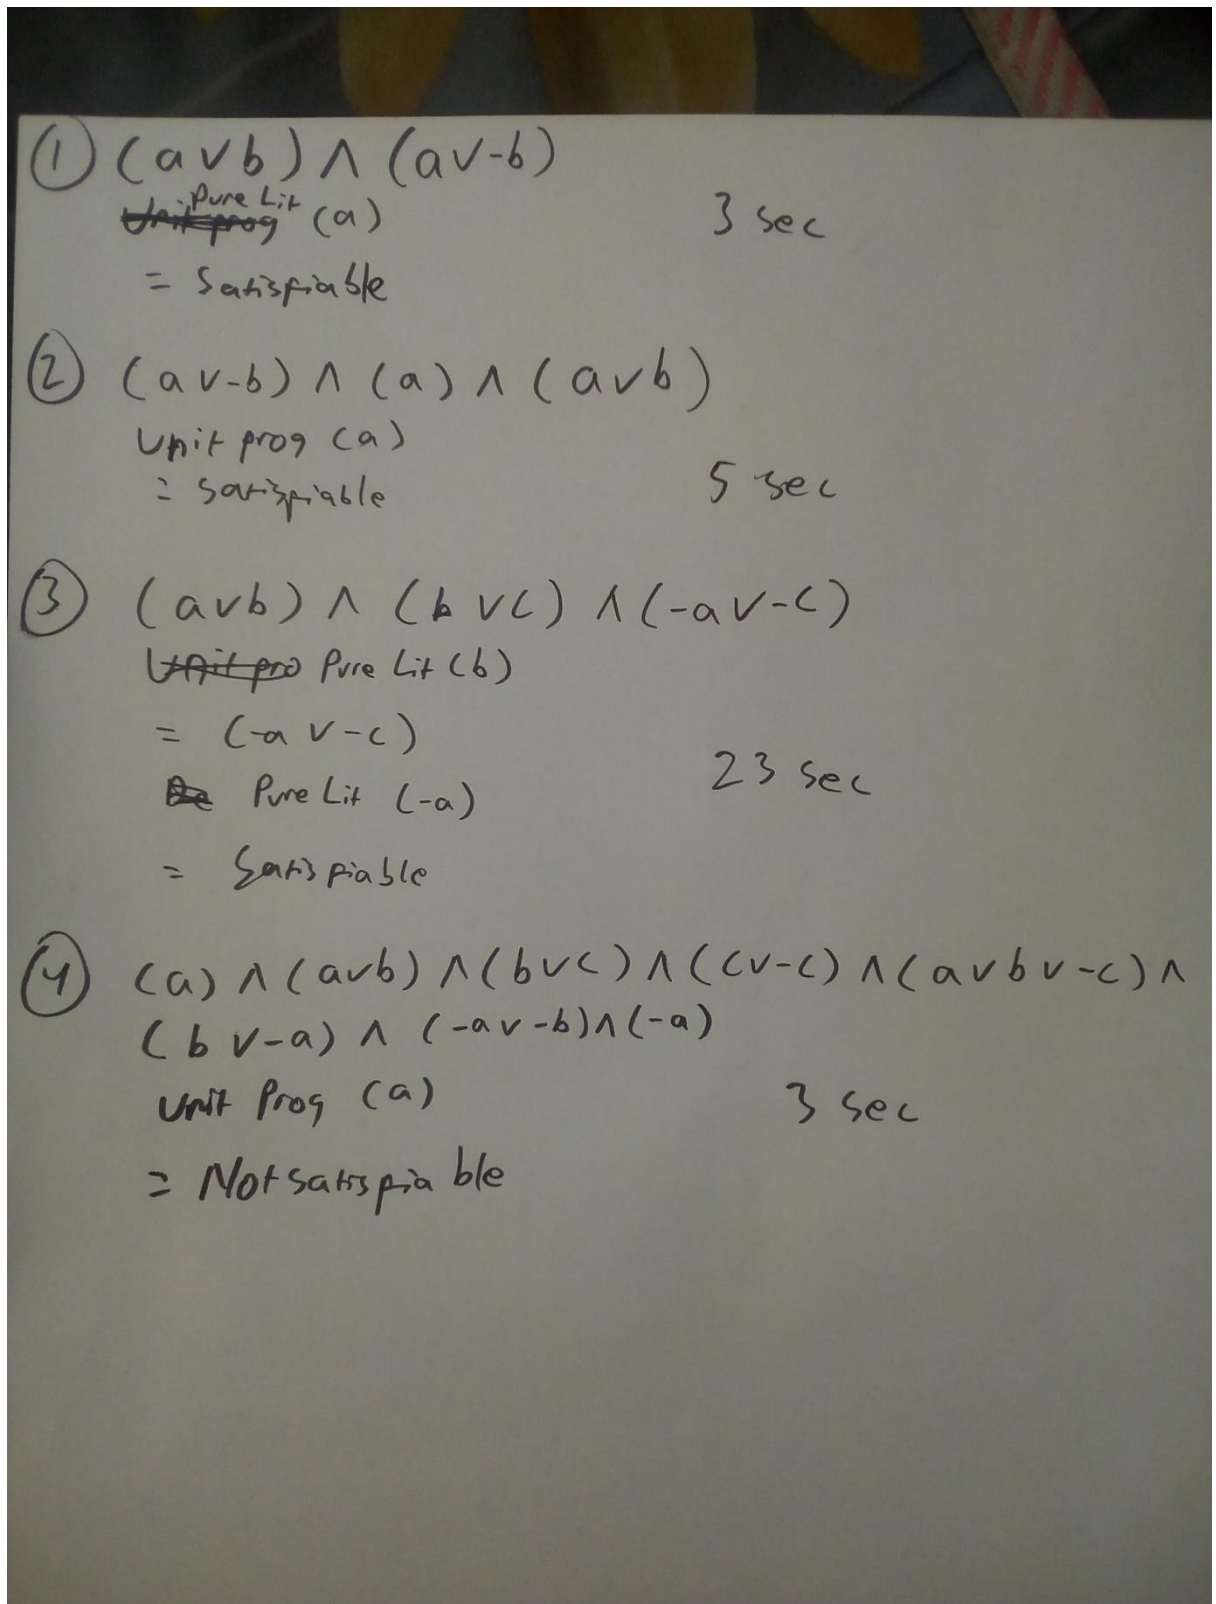 ① (a∨b) ∧ (a∨-b)
Pure Lit
Unit prog (a)
3 sec
= Satisfiable
② (a∨-b) ∧ (a) ∧ (a∨b)
Unit prog (a)
= satisfiable
5 sec
③ (a∨b) ∧ (b∨c) ∧ (-a∨-c)
Unit pro Pure Lit (b)
= (-a∨-c)
23 sec
Pure Lit (-a)
= Satisfiable
④ (a) ∧ (a∨b) ∧ (b∨c) ∧ (c∨-c) ∧ (a∨b∨-c) ∧
(b∨-a) ∧ (-a∨-b) ∧ (-a)
Unit Prog (a)
3 sec
= Not satisfiable